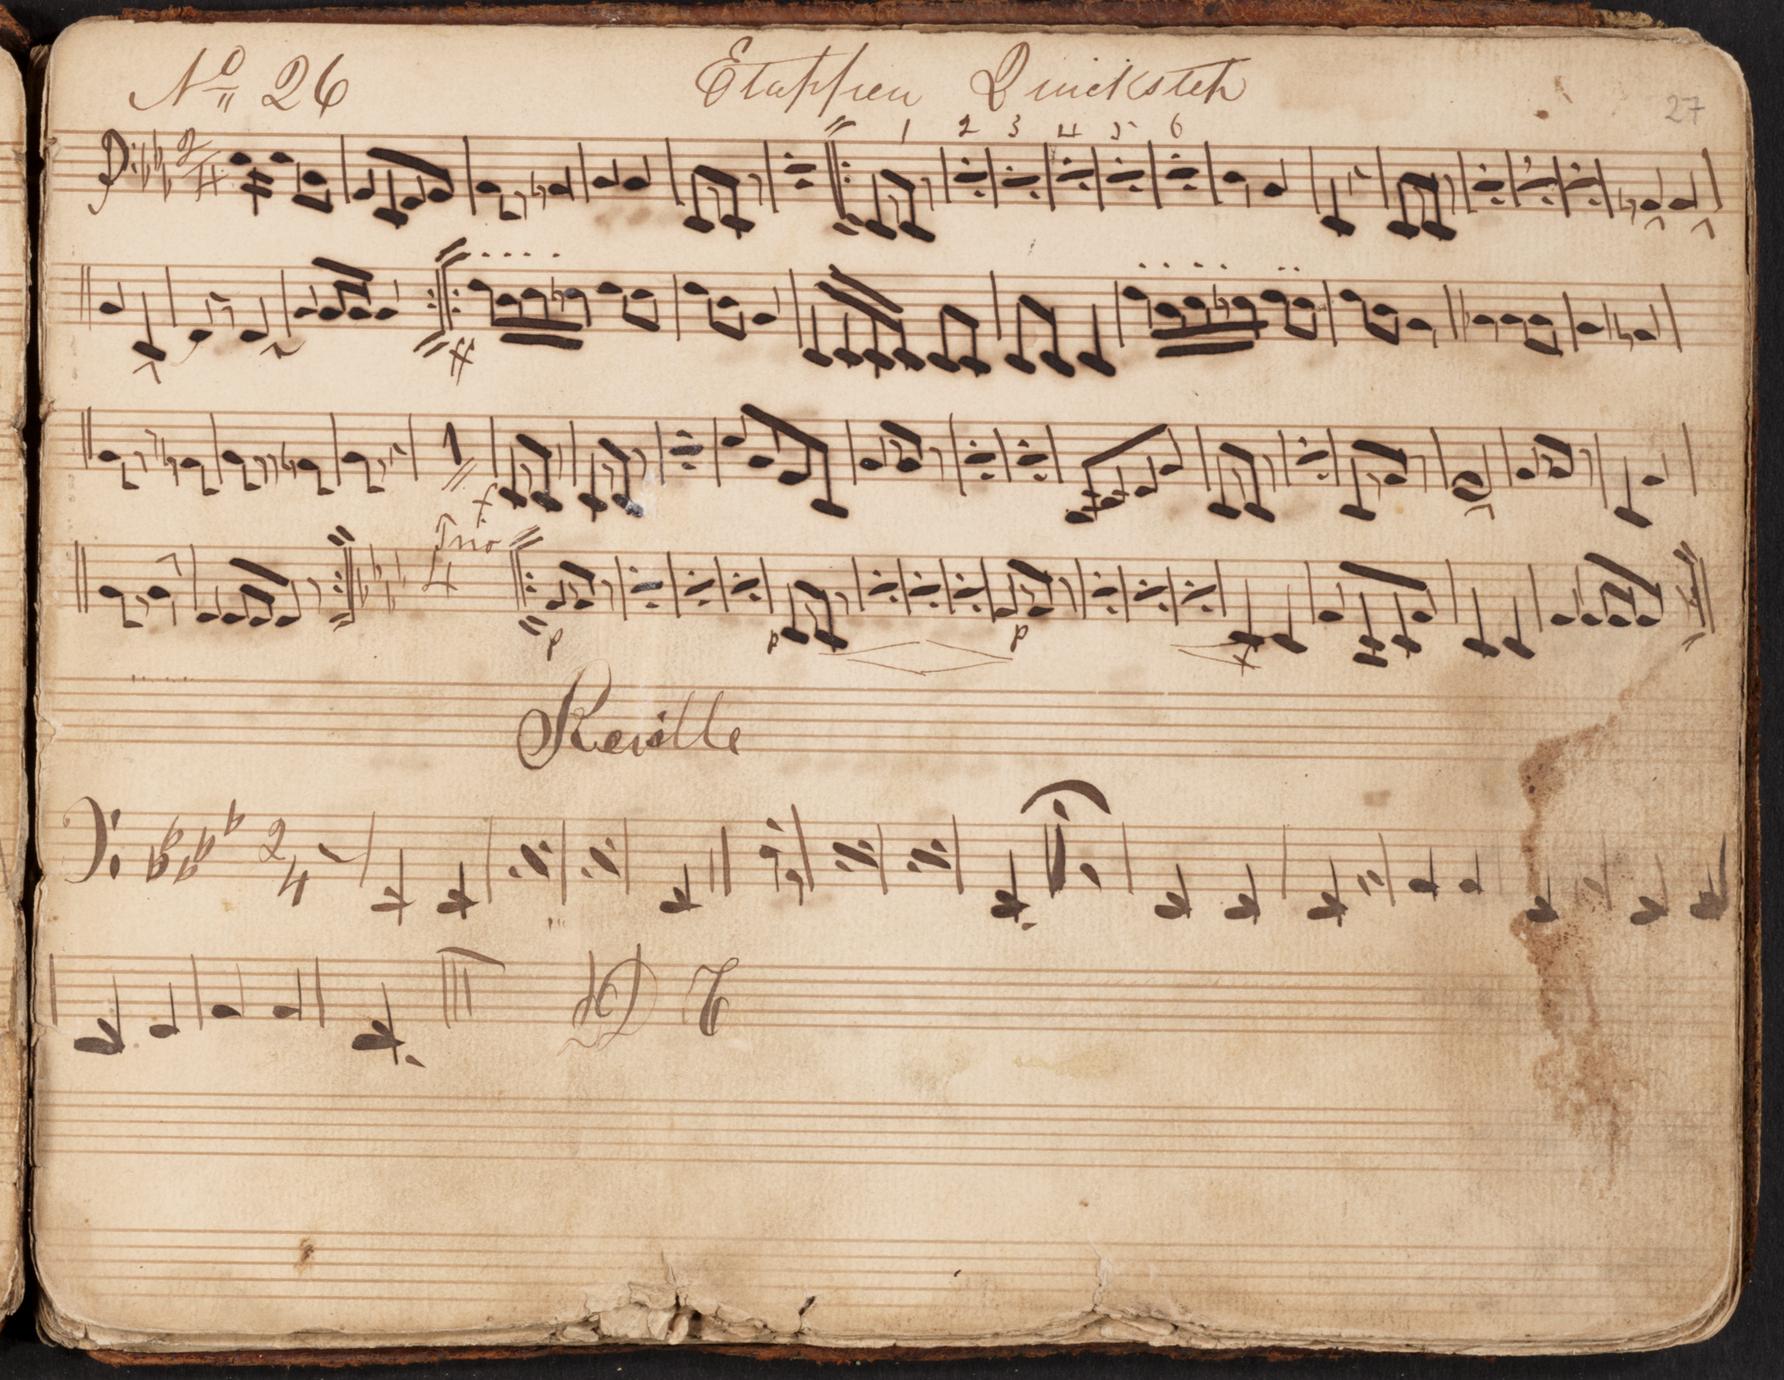 No 26 Etappien Quickstep 27
2/4 1 2 3 4 5 6
ff
1
Trio
4
p p p
Reville
2/4